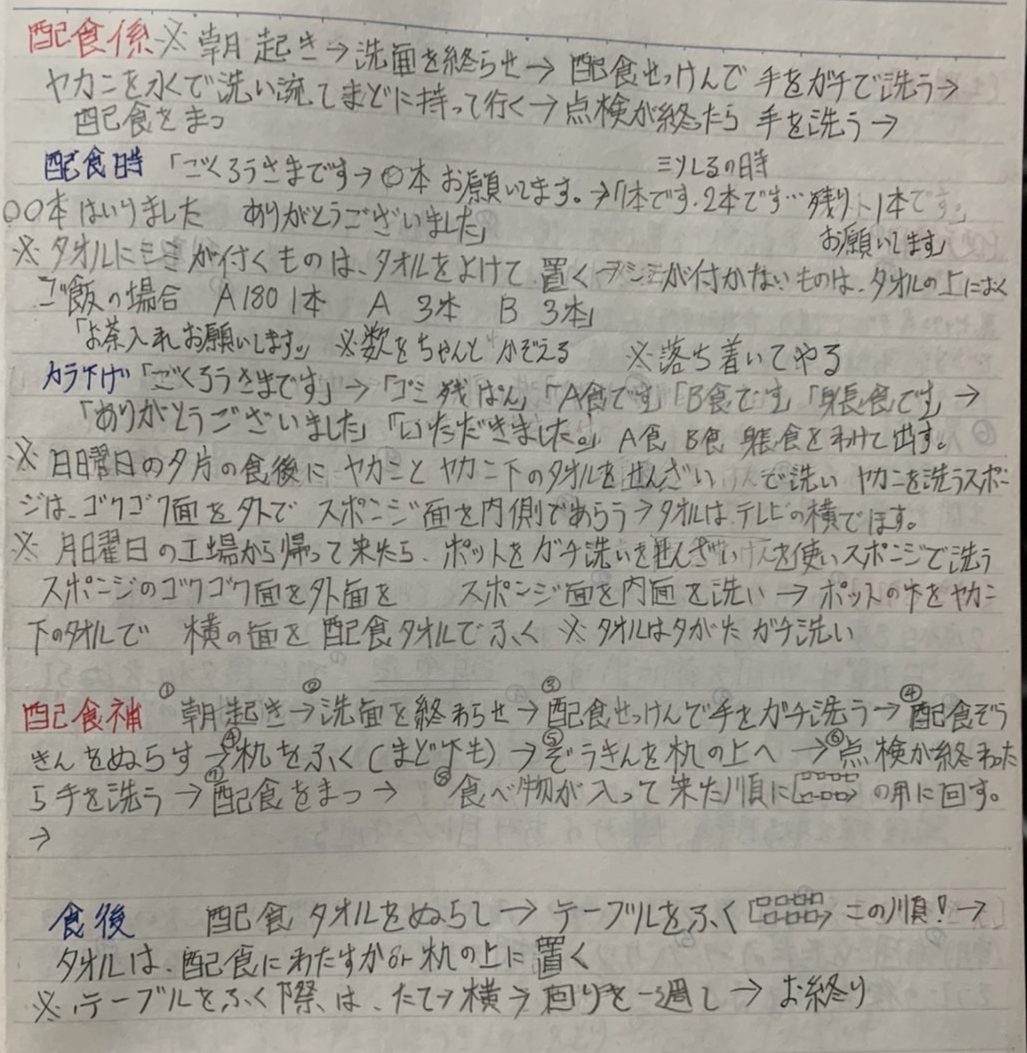 配食係※ 朝起き→洗面を終らせ→ 配食せっけんで 手をガチで洗う→
ヤカニを水で洗い流てまどに持って行く→点検が終ったら 手を洗う→
配食をまつ
ミソしるの時
配食時 「ごくろうさまです→〇本 お願いしてます。→「1本です.2本です…残り、1本です。」
〇〇本はいりました ありがとうございました」 お願いしてます」
※タオルにシミが付くものは、タオルをよけて 置く→シミが付かないものは、タオルの上におく
ご飯の場合 A180 1本 A 3本 B 3本」
「お茶入れお願いします。」 ※数をちゃんとかぞえる ※落ち着いてやる
カラ下げ「ごくろうさまです」→「ゴミ残ぱん」「A食です」「B食です」「身長食です」→
「ありがとうございました」「いただきました。」 A食 B食 身長食をわけて出す。
※日曜日の夕方の食後に ヤカニと ヤカニ下のタオルをせんざい で洗い ヤカニを洗うスポニ
ジは、ゴクゴク面を外で スポニジ面を内側であらう→タオルは、テレビの横でほす。
※ 月曜日の工場から帰って来たら、ポットをガチ洗いをせんざい を使いスポニジで洗う
スポニジのゴクゴク面を外面を スポンジ面を内面を洗い→ポットの下をヤカニ
下のタオルで 横の面を配食タオルでふく ※タオルは夕がたガチ洗い
配食補 ①朝起き→②洗面を終わらせ→③配食せっけんで手をガチ洗う→④配食ぞう
きんをぬらす→④机をふく(まど下も)→⑤ぞうきんを机の上へ→⑥点検が終わった
ら手を洗う→⑦配食をまつ→ ⑧食べ物が入って来た順に の用に回す。
→
食後 配食タオルをぬらして→テーブルをふく この順!→
タオルは、配食にわたすか or 机の上に置く
※、テーブルをふく際は、たて→横→回りを一週して→お終り